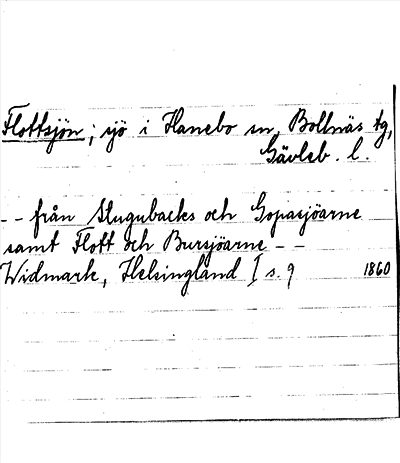 Flottsjön; sjö i Hanebo sn, Bollnäs tg,
Gävleb. l.
-- från Slugubacks och Gopasjöarne
samt Flott och Bursjöarne --
Widmark, Helsingland I s. 9 1860